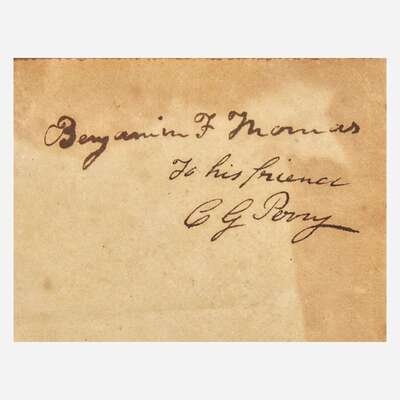 Benjamin F Thomas
To his friend
C G Perry